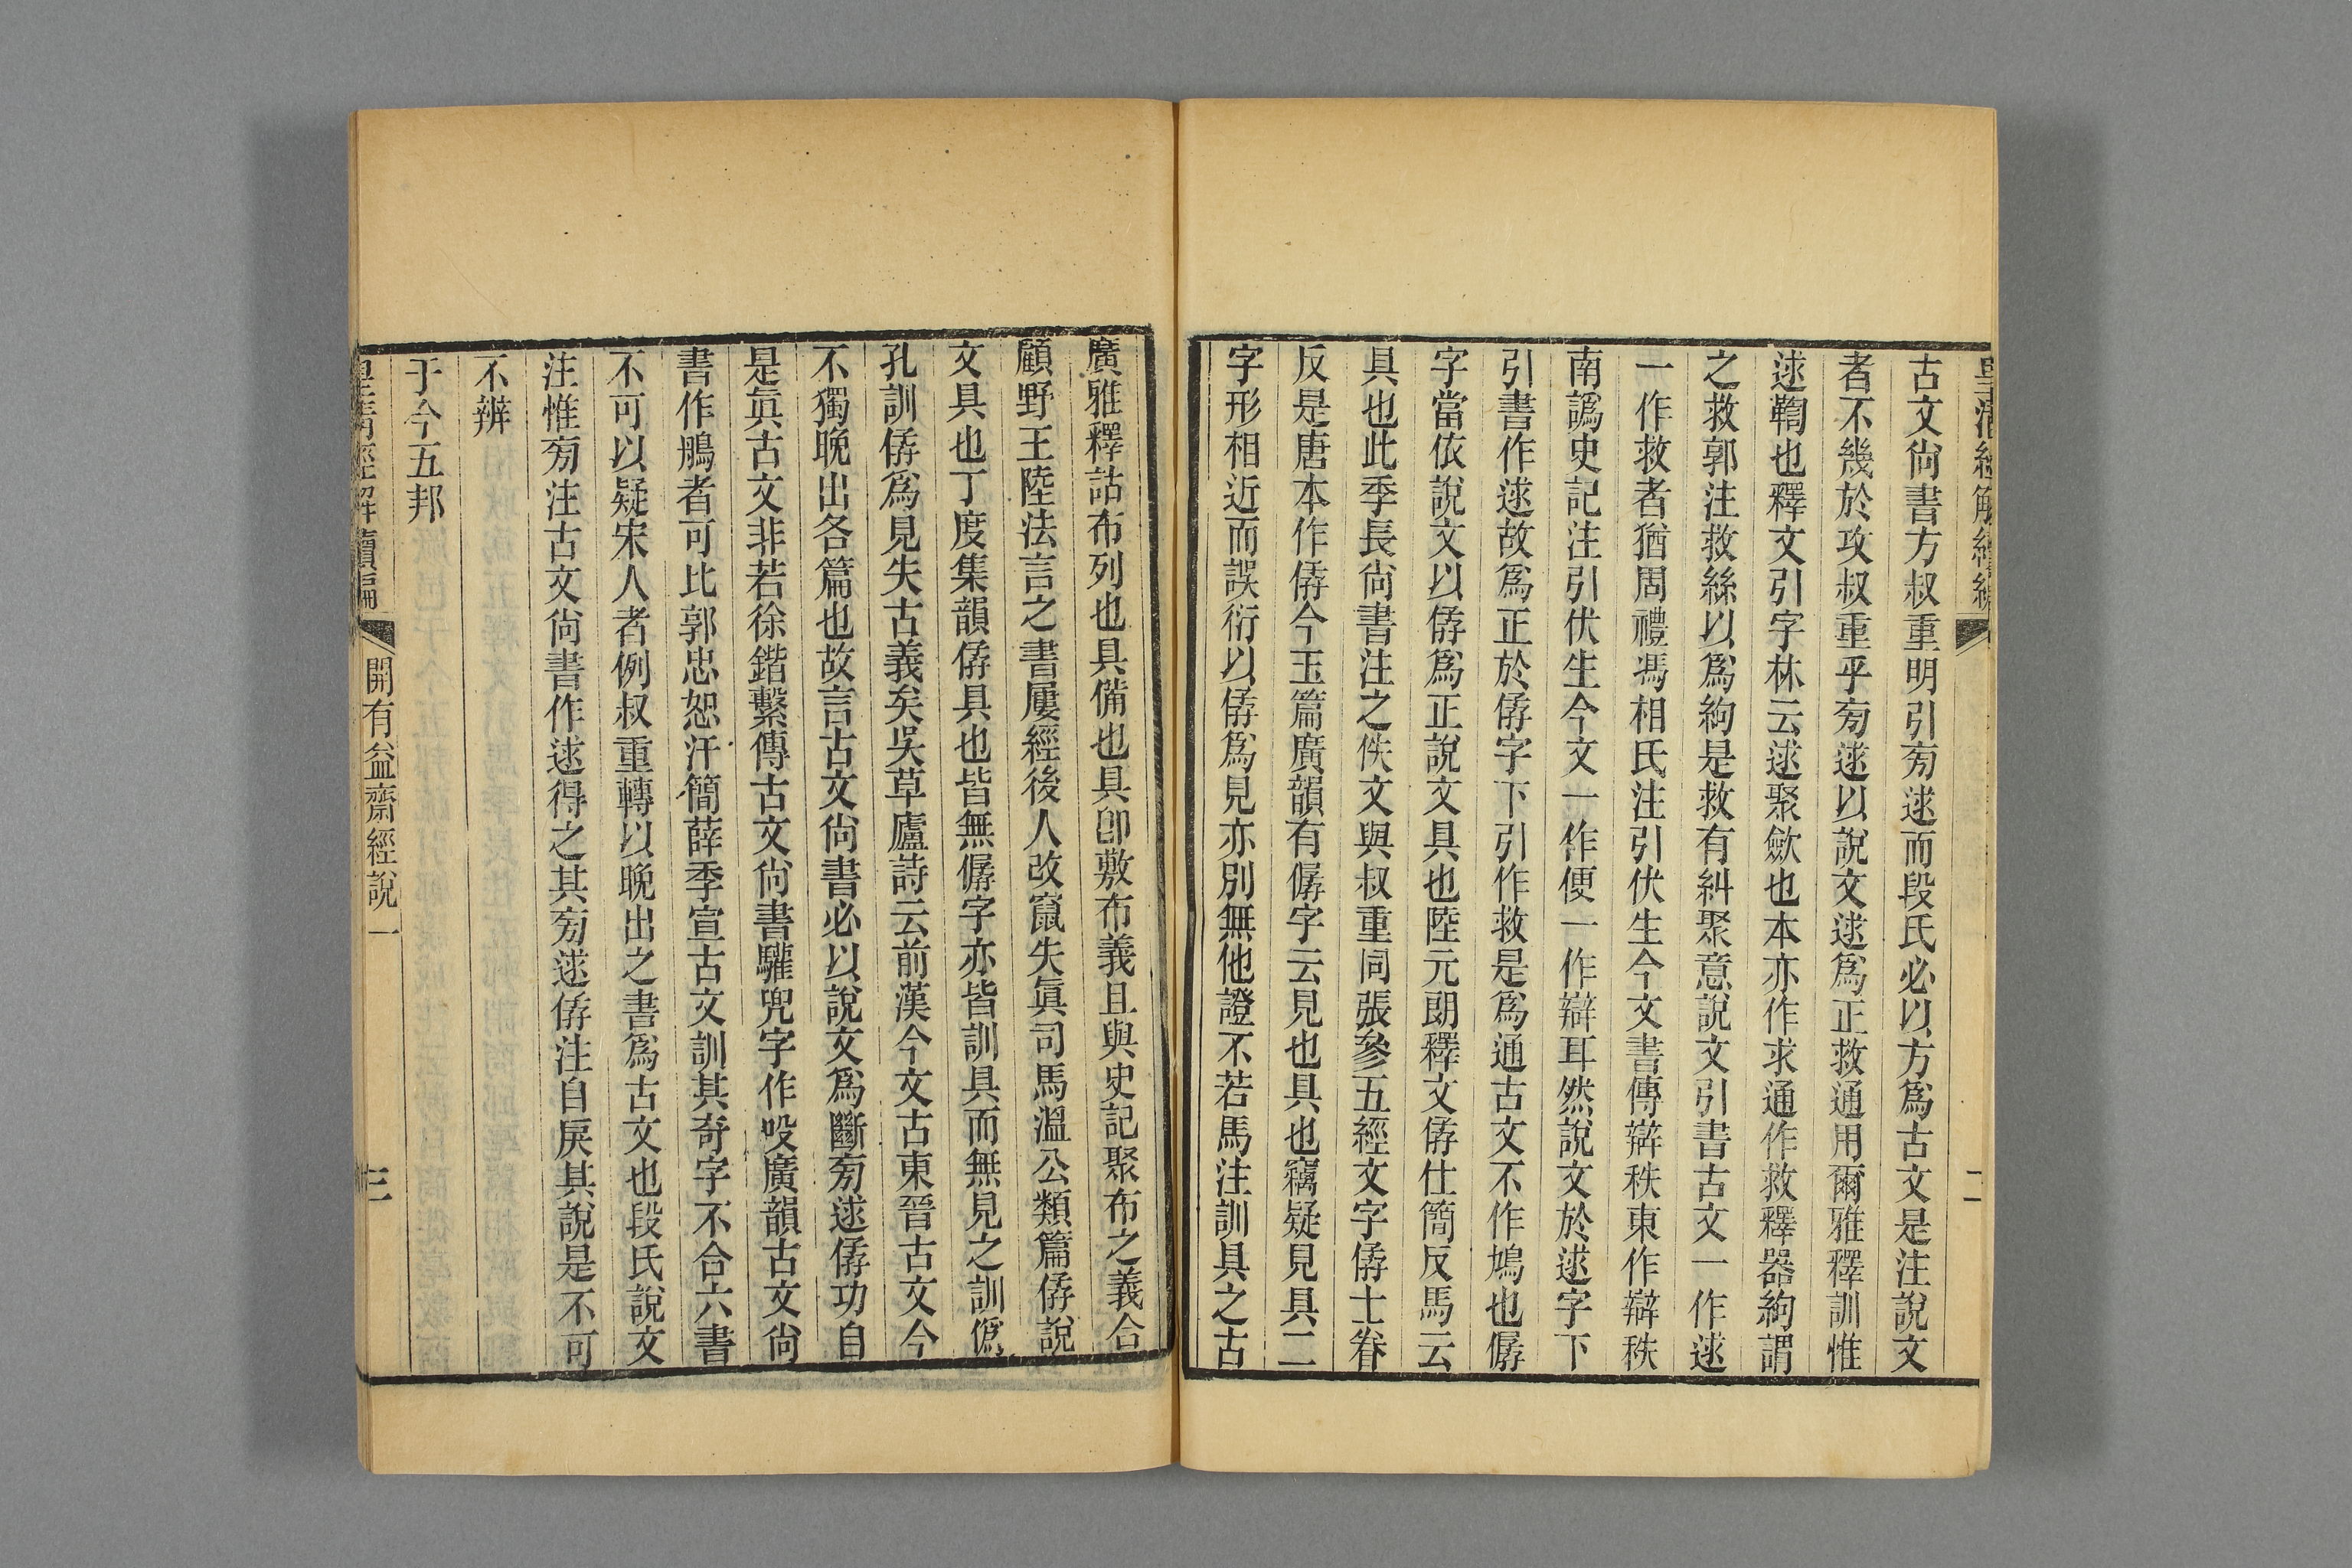 皇清經解續編
二
古文尙書方叔重明引㫄逑而段氏必以方爲古文是注說文
者不幾於攻叔重乎㫄逑以說文逑爲正救通用爾雅釋訓惟
逑鞫也釋文引字林云逑聚斂也本亦作求通作救釋器絇謂
之救郭注救絲以爲絇是救有糾聚意說文引書古文一作逑
一作救者猶周禮馮相氏注引伏生今文書傳辯秩東作辯秩
南譌史記注引伏生今文一作便一作辯耳然說文於逑字下
引書作逑故爲正於僝字下引作救是爲通古文不作鳩也僝
字當依說文以孱爲正說文具也陸元朗釋文僝仕簡反馬云
具也此季長尙書注之佚文與叔重同張參五經文字僝士眷
反是唐本作僝今玉篇廣韻有僝字云見也具也竊疑見具二
字形相近而誤衍以僝爲見亦別無他證不若馬注訓具之古
廣雅釋詁布列也具備也具卽敷布義且與史記聚布之義合
顧野王陸法言之書屢經後人改竄失眞司馬溫公類篇僝說
文具也丁度集韻僝具也皆無僝字亦皆訓具而無見之訓僞
孔訓僝爲見失古義矣吳草廬詩云前漢今文古東晉古文今
不獨晚出各篇也故言古文尙書必以說文爲斷㫄逑僝功自
是眞古文非若徐鍇繫傳古文尙書驩兜字作吺廣韻古文尙
書作鴅者可比郭忠恕汗簡薛季宣古文訓其奇字不合六書
不可以疑宋人者例叔重轉以晚出之書爲古文也段氏說文
注惟㫄注古文尙書作逑得之其㫄逑僝注自戾其說是不可
不辨
于今五邦
皇清經解續編
開有益齋經說一
三